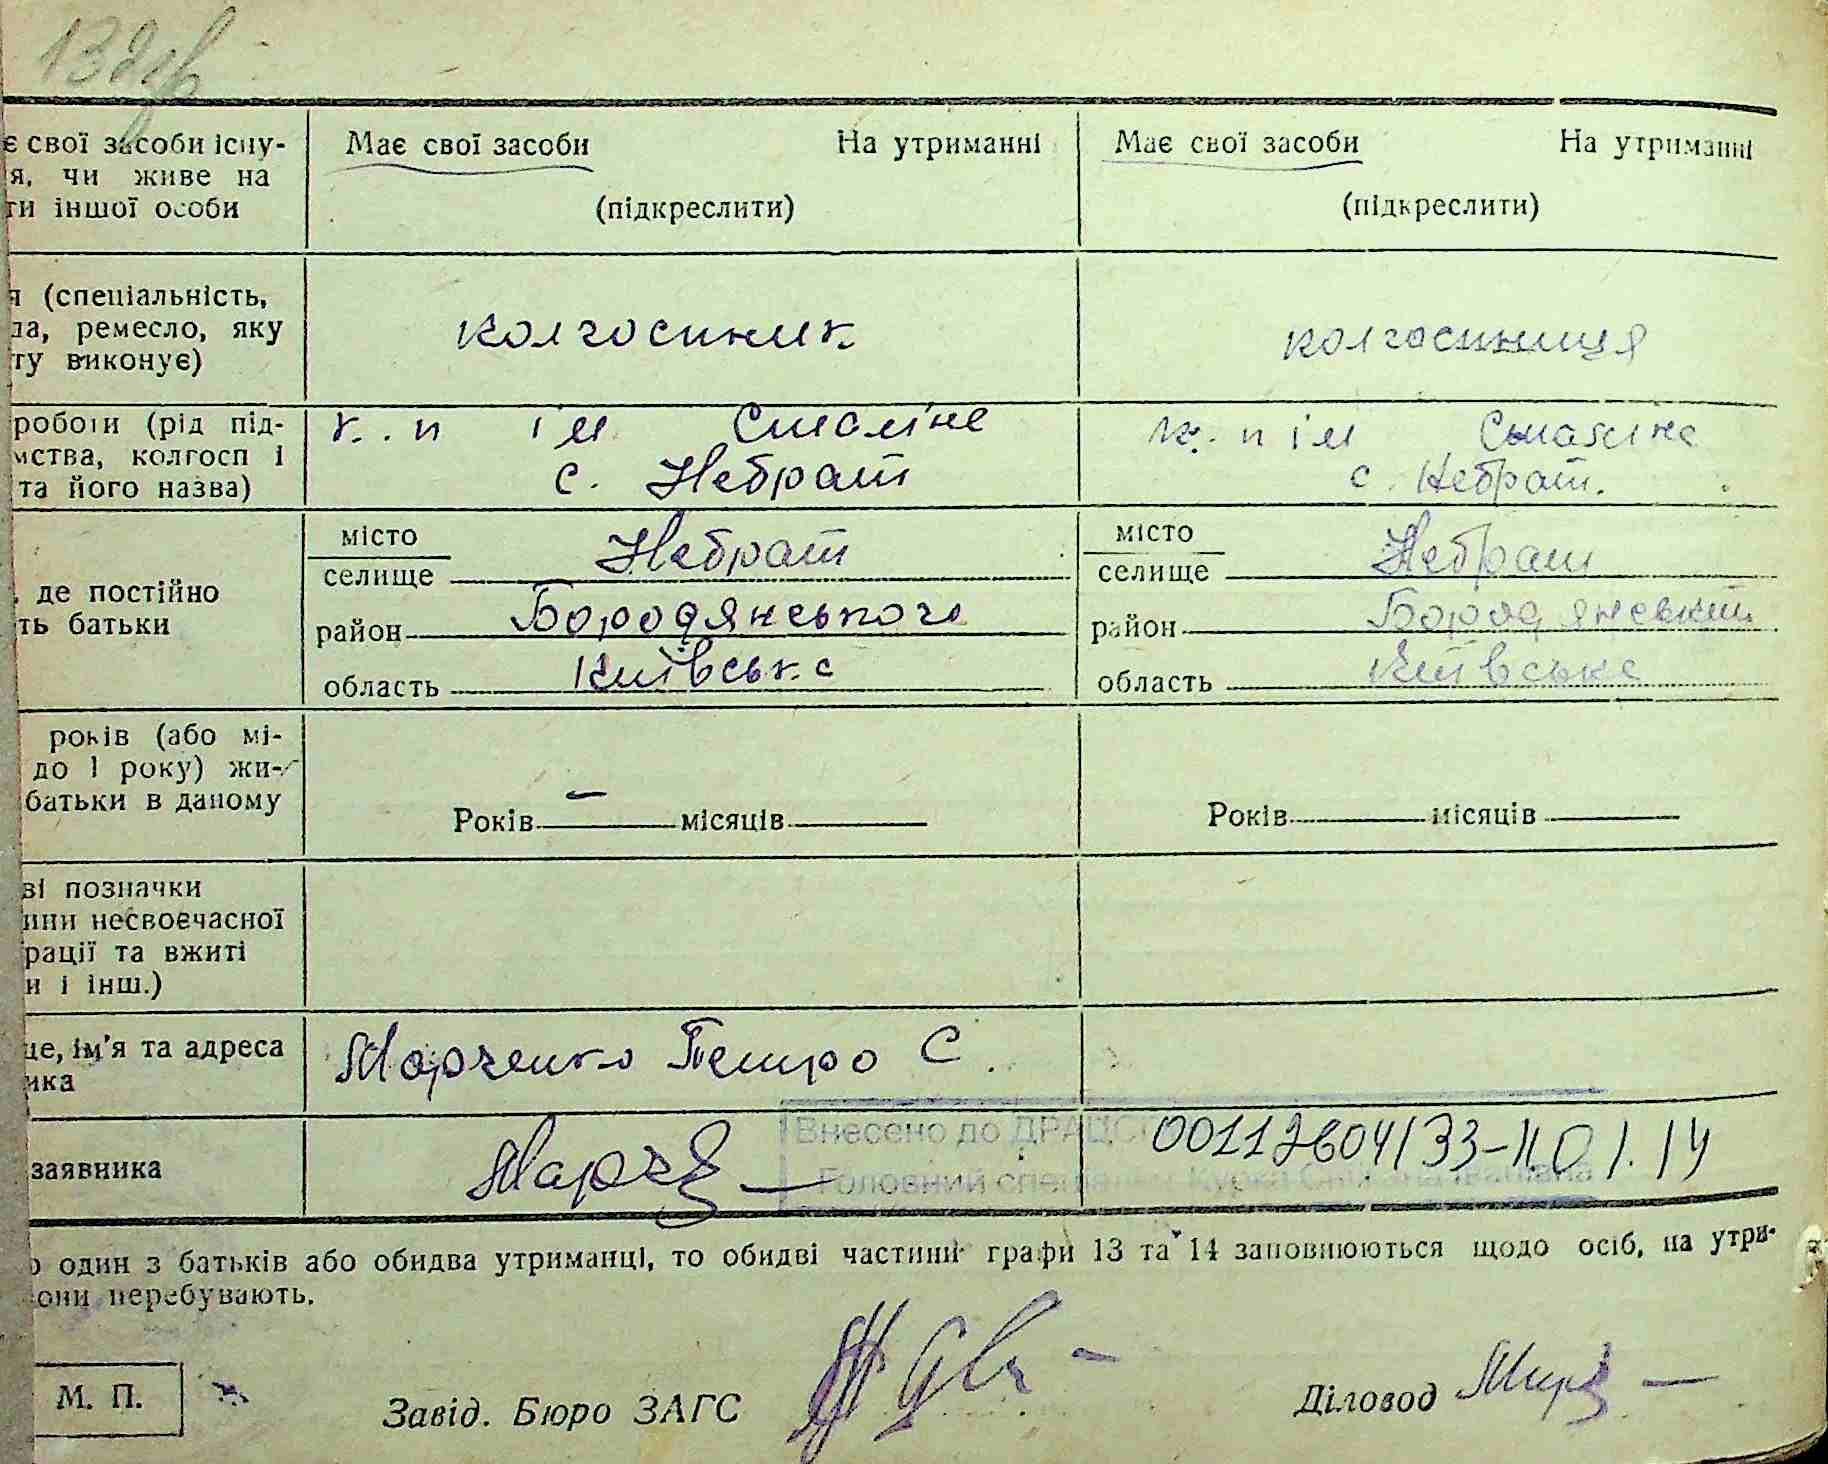 13 зв
є свої засоби існу- Має свої засоби На утриманні Має свої засоби На утриманні
я, чи живе на
ти іншої особи (підкреслити) (підкреслити)
я (спеціальність,
да, ремесло, яку колгоспник колгоспниця
ту виконує)
роботи (рід під- к. п ім Сталіна к. п ім Сталіна
мства, колгосп і с. Небрат с. Небрат.
та його назва)
місто Небрат місто Небрат
селище селище
, де постійно район Бородянського район Бородянський
ть батьки
область Київська область Київська
років (або мі-
до 1 року) жи-
батьки в даному
Років — місяців Років місяців
ві позначки
ини несвоєчасної
рації та вжиті
и і інш.)
це, ім'я та адреса Марченко Петро С.
ика
Внесено до ДРАЦС 00112604133-11.01.14
заявника Марч
Головний спеціаліст Курка Світлана Іванівна
о один з батьків або обидва утриманці, то обидві частини графи 13 та 14 заповнюються щодо осіб, на утри-
они перебувають.
М. П. Завід. Бюро ЗАГС Діловод